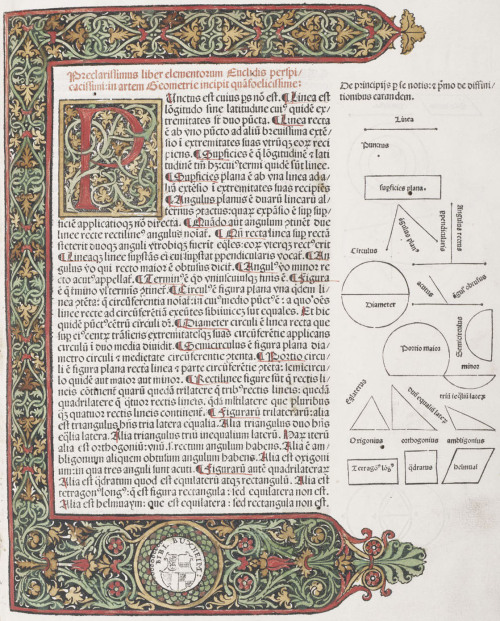 Preclarissimus liber elementorum Euclidis perspi/
cacissimi: in artem Geometrie incipit quãfoelicissime:
PUnctus est cuius ps nõ est. ¶ Linea est
lõgitudo sine latitudine cuiꝰ quidẽ ex/
tremitates sũt duo pũcta. ¶ Linea recta
ẽ ab vno pũcto ad aliũ breuissima extẽ/
sio ĩ extremitates suas vtrũqꝫ eoꝝ reci
piens. ¶ Supficies ẽ q̃ lõgitudinẽ ⁊ lati
tudinẽ tm̃ hꝫ: cuiꝰ termi quidẽ sũt linee.
¶ Supficies plana ẽ ab vna linea ad a/
liã extẽsio ĩ extremitates suas recipiẽs
¶ Angulus planus ẽ duarũ linearũ al/
ternus ꝯtactus: quaꝝ expãsio ẽ sup sup/
ficiẽ applicatioqꝫ nõ directa. ¶ Quãdo aũt angulum ꝯtinẽt due
linee recte rectilineꝰ angulus noiat̃. ¶ Qñ recta linea sup rectã
steterit duoqꝫ anguli vtrobiqꝫ fuerit eq̃les: eoꝝ vterqꝫ rectꝰerit
¶ Lineaqꝫ linee supstãs ei cui supstat ppendicularis vocat̃. ¶ An
gulus vo qui recto maior ẽ obtusus dicit̃. ¶ Angulꝰ vo minor re
cto acutꝰ appellat̃. ¶ Terminꝰ ẽ qd̃ vniuscuiusqꝫ finis ẽ. ¶ Figura
ẽ q̃ tmino vl̃ terminis ꝯtinet̃. ¶ Circulꝰ ẽ figura plana vna qdem li/
nea ꝯtẽta: q̃ circũferentia noiat̃: in cuiꝰ medio pũctꝰ ẽ: a quo oẽs
linee recte ad circũferẽtiã exeũtes sibiinuicẽ sũt equales. Et hic
quidẽ pũctꝰ cẽtrũ circuli dr̃. ¶ Diameter circuli ẽ linea recta que
sup eiꝰ centꝝ trãsiens extremitatesqꝫ suas circũferẽtie applicans
circulũ ĩ duo media diuidit. ¶ Semicirculus ẽ figura plana dia/
metro circuli ⁊ medietate circũferentie ꝯtenta. ¶ Portio circu/
li ẽ figura plana recta linea ⁊ parte circũferẽtie ꝯtẽta: semicircu/
lo quidẽ aut maior aut minor. ¶ Rectilinee figure sũt q̃ rectis li/
neis cõtinent̃ quarũ quedã trilatere q̃ tribꝰ rectis lineis: quedã
quadrilatere q̃ quatuor rectis lineis. qdã mĩtilatere que pluribus
qꝫ quatuor rectis lineis continent̃. ¶ Figurarũ trilateraꝝ: alia
est triangulus hñs tria latera equalia. Alia triangulus duo hñs
eq̃lia latera. Alia triangulus triũ inequalium laterũ. Haꝝ iterũ
alia est orthogoniũ: vnũ .f. rectum angulum habens. Alia ẽ am/
bligonium aliquem obtusum angulum habens. Alia est oxigoni
um: in qua tres anguli sunt acuti. ¶ Figurarũ aũtẽ quadrilateraꝝ
Alia est qdratum quod est equilaterũ atqꝫ rectangulũ. Alia est
tetragonꝰ longꝰ: q̃ est figura rectangula: sed equilatera non est.
Alia est helmuaym: que est equilatera: sed rectangula non est.
De principijs p se notis: ⁊ pmo de diffini/
tionibus earandem.
Linea
Punctus
supficies plana.
Circulus
Diameter
Portio maior
Semicirculus
minor
acutus
angꝰ obtusus
Angulus rectus
ppendicularis
ãgulus planꝰ
Eq̃laterus
duũ equaliũ lateꝝ
triũ ieq̃liũ lateꝝ
Oxigonius
orthogonius
ambligonius
Tetragonꝰ lõgꝰ
q̃dratus
helmuaĩ